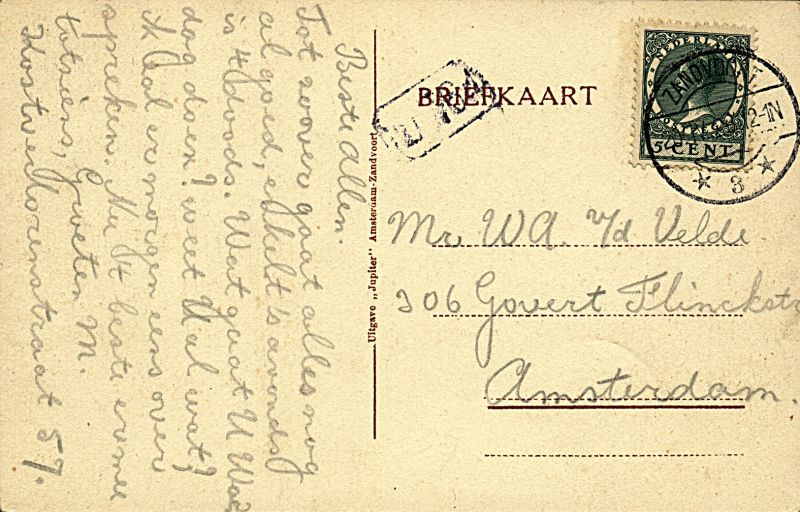 Beste allen.
Tot zoover gaat alles nog
al goed, enkelt 's avonds
is 't doods. Wat gaat U
dag doen? weet U al wat?
ik zal er morgen eens over
spreken. Nu 't beste ermee
totsiens, Groeten M.
Kostverlorenstraat 57.
Uitgave „Jupiter" Amsterdam-Zandvoort
BRIEFKAART
NEDERLAND
5 CENT
ZANDVOORT
12-1N
3
Mr. WA. v/d Velde
306 Govert Flinckstr
Amsterdam.